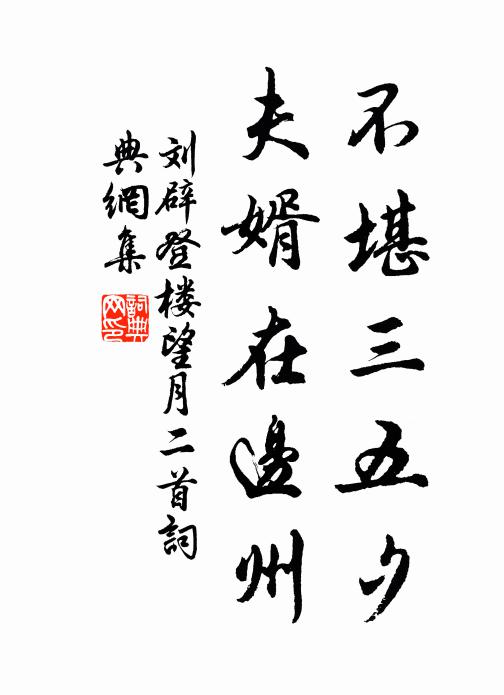 不堪三五夕
夫婿在邊州
刘辟登楼望月二首詞
典網集
詞典
网印